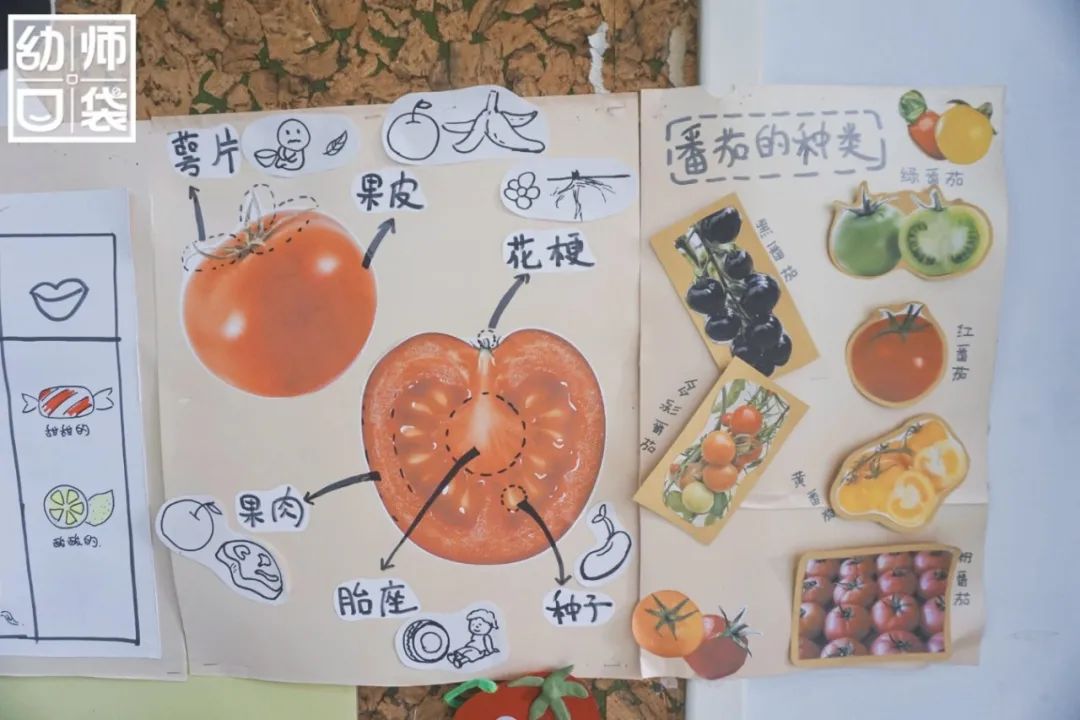 幼师口袋
萼片
果皮
花梗
果肉
胎座
种子
甜甜的
酸酸的.
番茄的种类
绿番茄
黑番茄
红番茄
多彩番茄
黄番茄
粉番茄